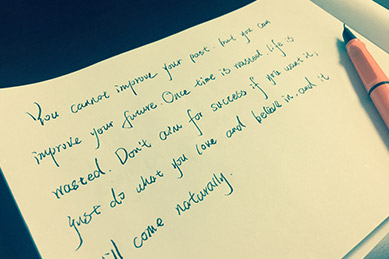 You cannot improve your past. but you can
improve your future. Once time is wasted. life is
wasted. Don't aim for success if you want it,
just do what you love and believe in. and it
ill come naturally.